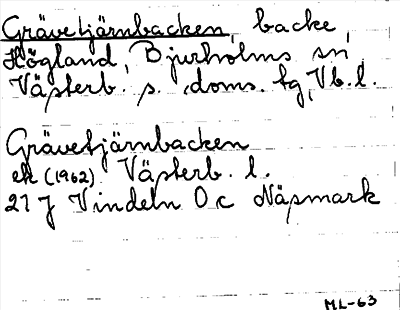 Grävetjärnbacken, backe,
Högland, Bjurholms sn,
Västerb. s. doms. tg, Vb. l.
Grävetjärnbacken
ek (1962) Västerb. l.
21 J Vindeln 0 c Näsmark
ML-63